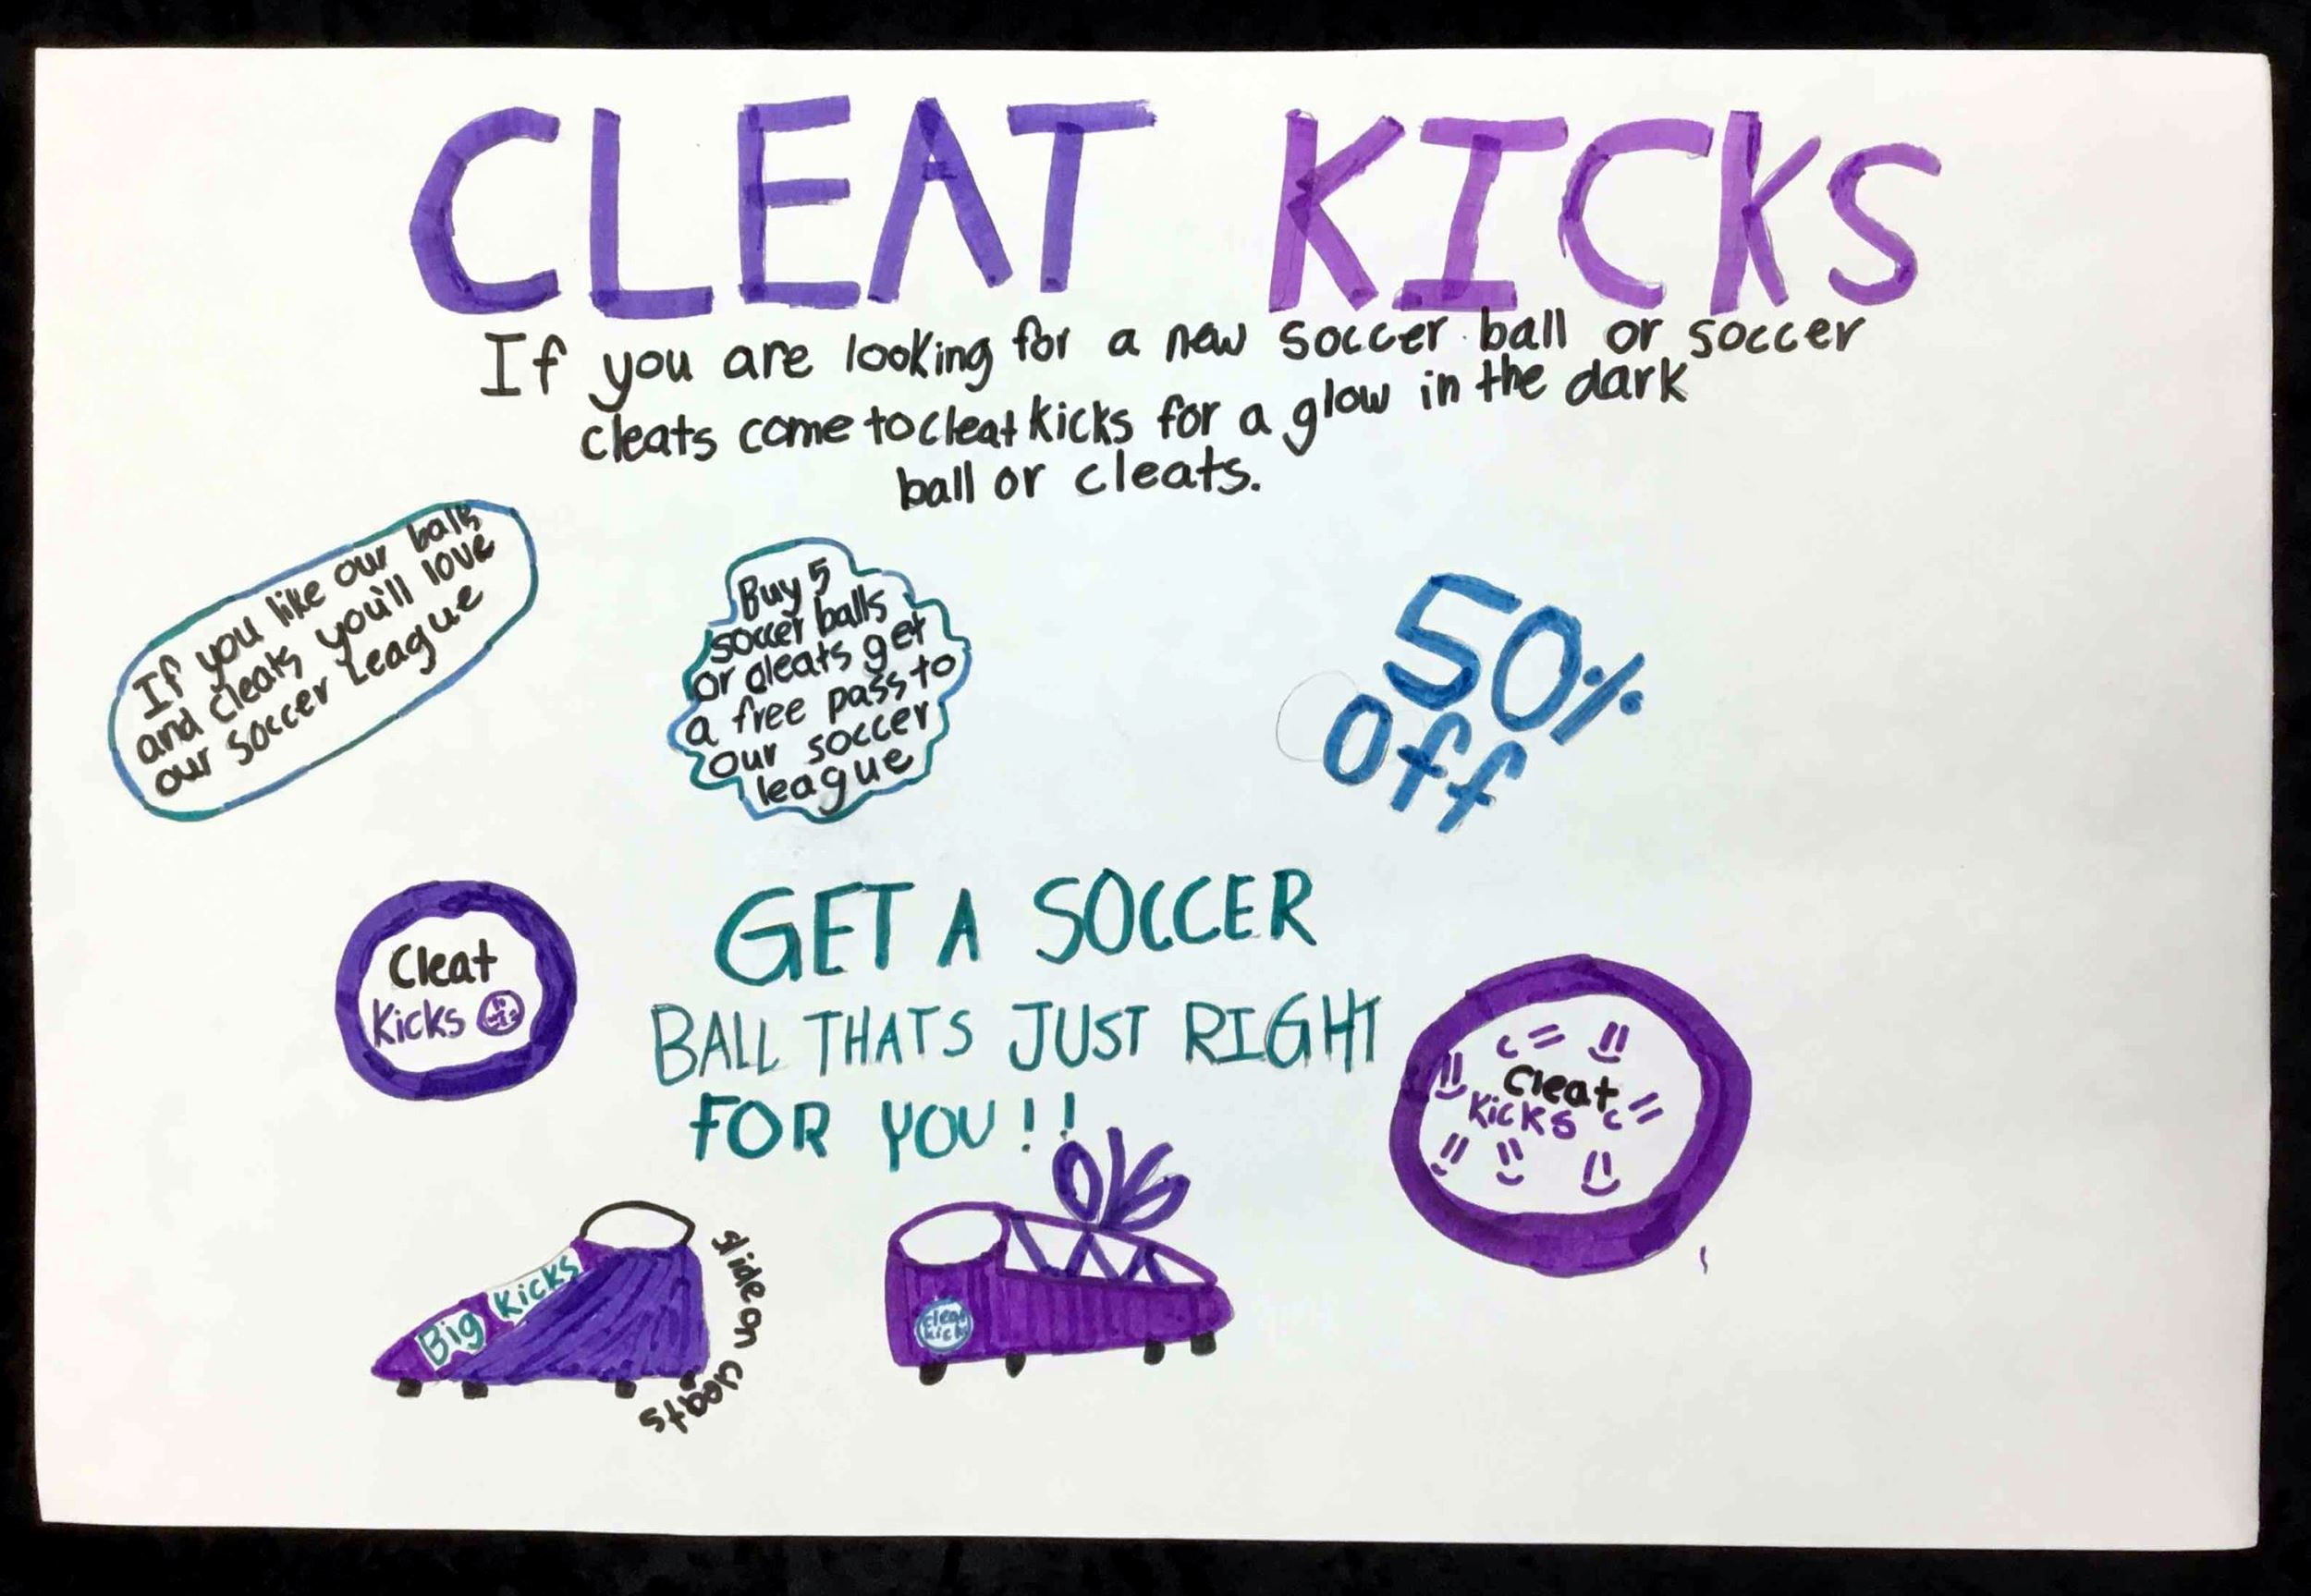 CLEAT KICKS
If you are looking for a new soccer ball or soccer
cleats come to cleat kicks for a glow in the dark
ball or cleats.
If you like our balls
and cleats you'll love
our soccer League
Buy 5
soccer balls
or cleats get
a free pass to
our soccer
league
50%
Off
GET A SOCCER
BALL THATS JUST RIGHT
FOR YOU!!
Cleat
Kicks
Cleat
Kicks
Big Kicks
slide on cleats
Cleat
kicks